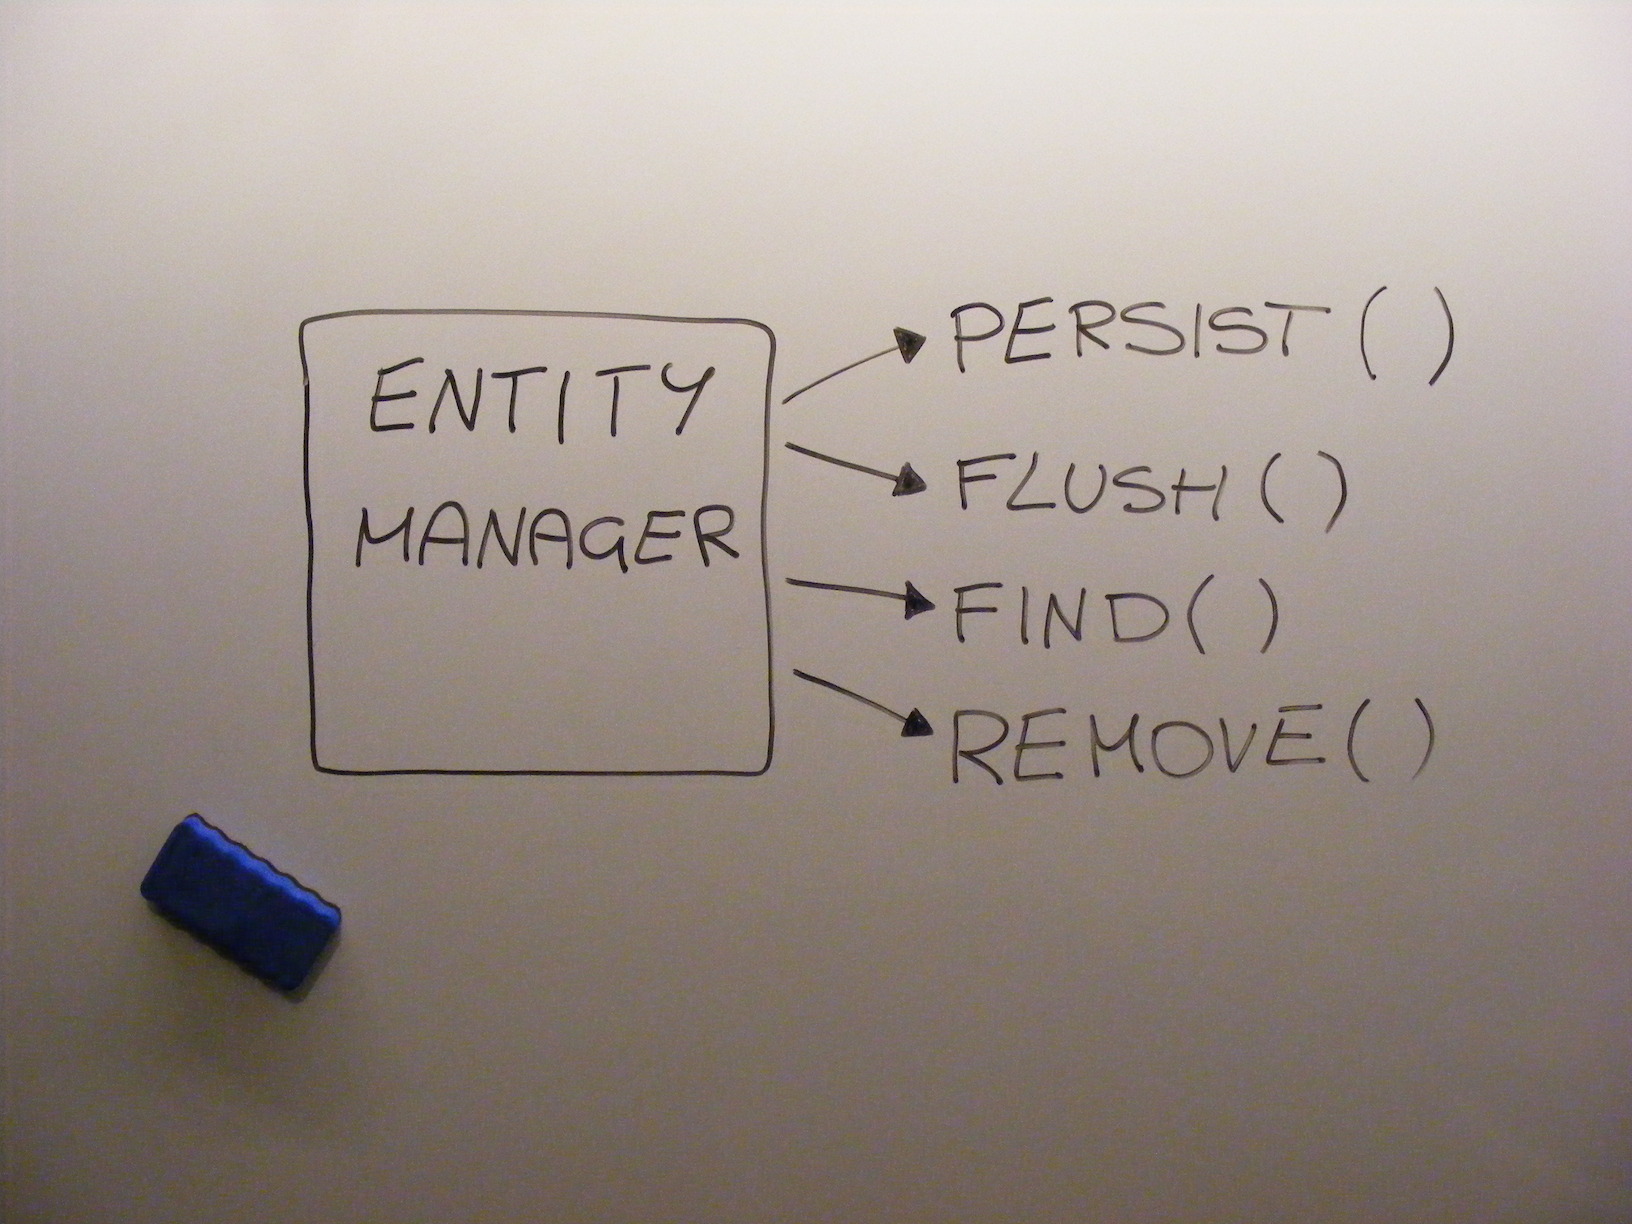 ENTITY
MANAGER
PERSIST()
FLUSH()
FIND()
REMOVE()